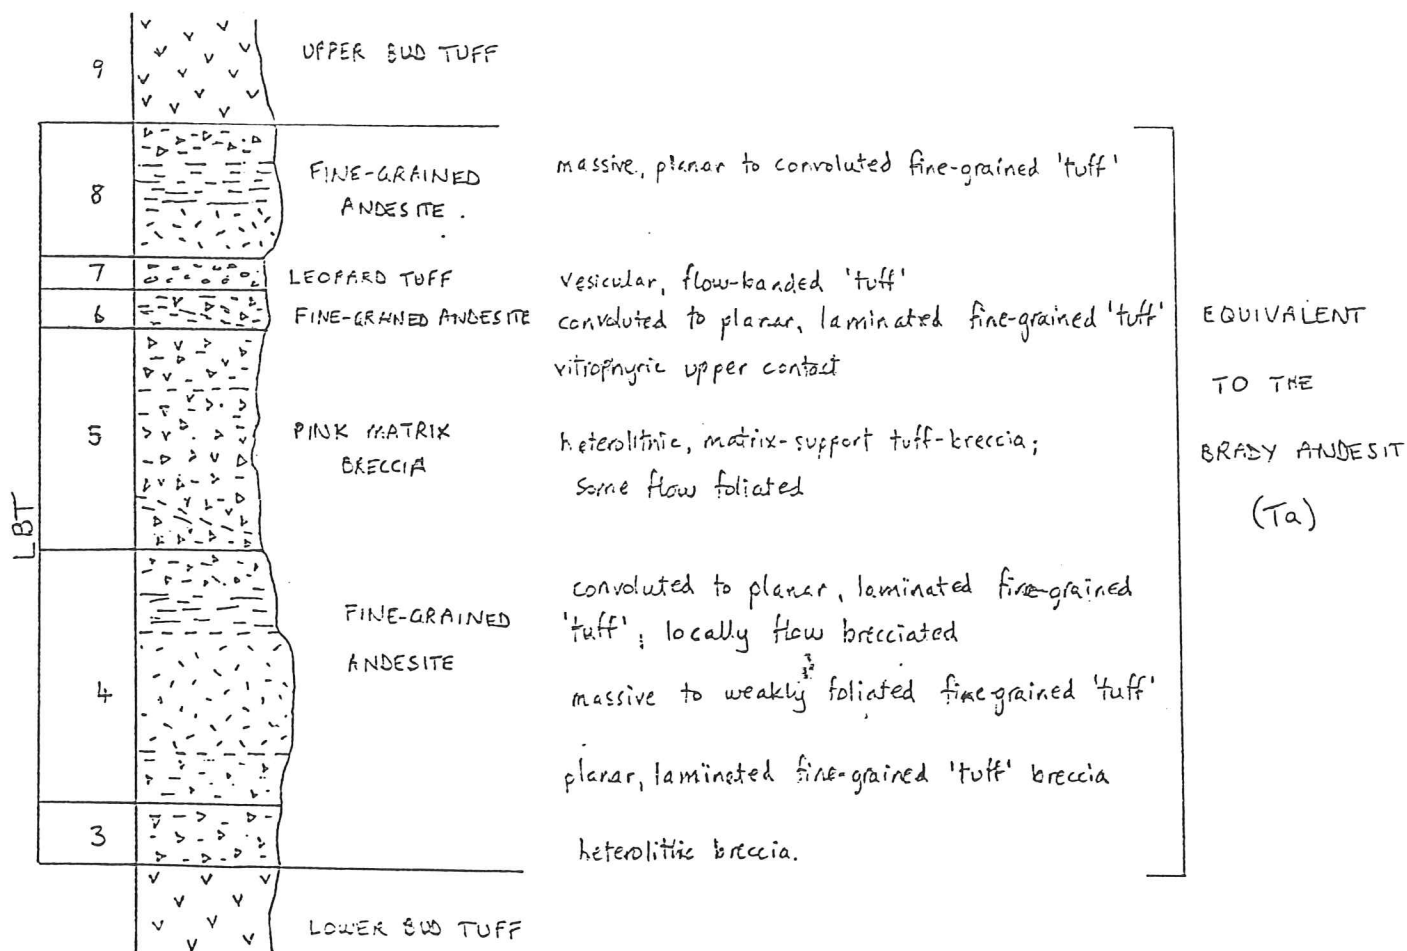 9
UPPER BUD TUFF
8
FINE-GRAINED
ANDESITE.
massive, planar to convoluted fine-grained 'tuff'
7
LEOPARD TUFF
vesicular, flow-banded 'tuff'
6
FINE-GRAINED ANDESITE
convoluted to planar, laminated fine-grained 'tuff'
vitrophyric upper contact
5
PINK MATRIX
BRECCIA
heterolithic, matrix-support tuff-breccia;
some flow foliated
LBT
4
FINE-GRAINED
ANDESITE
convoluted to planar, laminated fine-grained
'tuff'; locally flow brecciated
massive to weakly foliated fine-grained 'tuff'
planar, laminated fine-grained 'tuff' breccia
3
heterolithic breccia.
LOWER BUD TUFF
EQUIVALENT
TO THE
BRADY ANDESIT
(Ta)